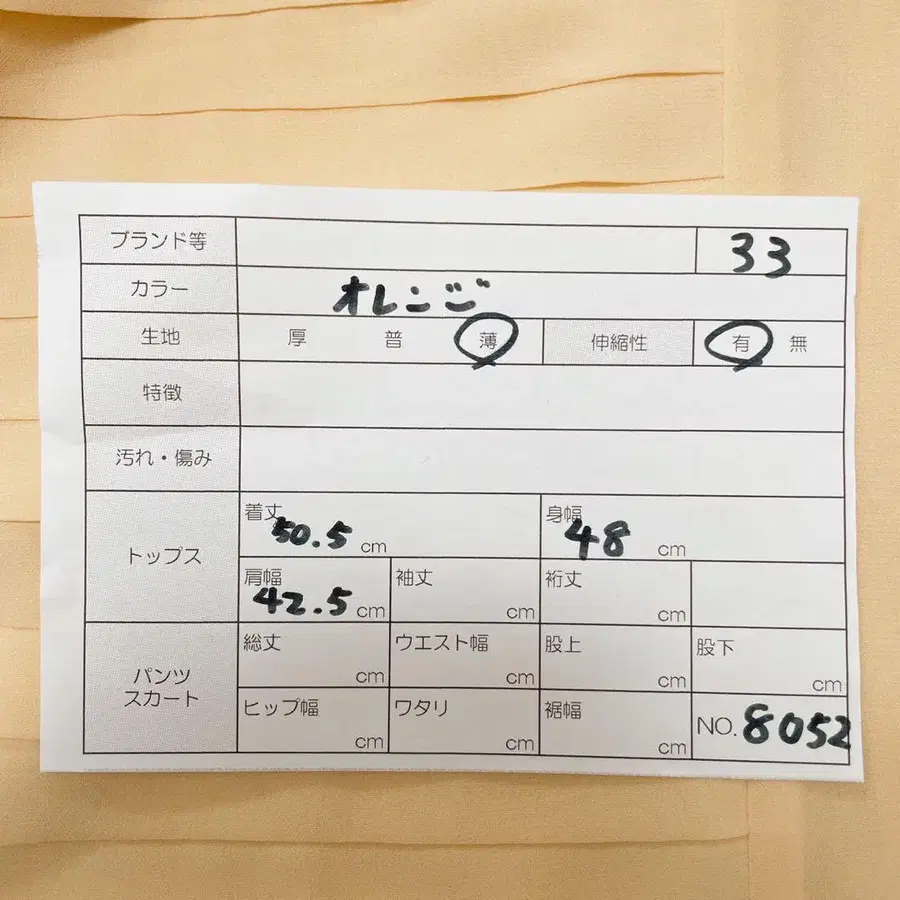 ブランド等 33
カラー オレンジ
生地 厚 普 薄 伸縮性 有 無
特徴
汚れ・傷み
トップス
着丈 50.5 cm 身幅 48 cm
肩幅 42.5 cm 袖丈 cm 裄丈 cm
パンツ
スカート
総丈 cm ウエスト幅 cm 股上 cm 股下 cm
ヒップ幅 cm ワタリ cm 裾幅 cm NO. 8052